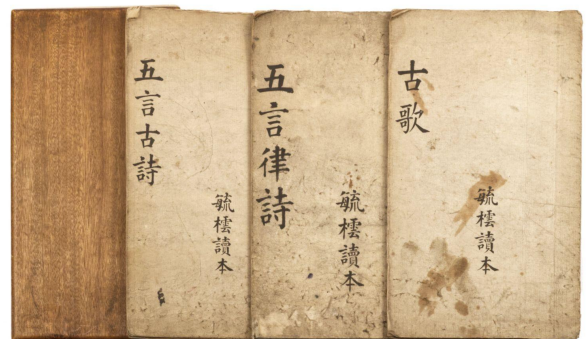 五言古詩
毓橒讀本
五言律詩
毓橒讀本
古歌
毓橒讀本